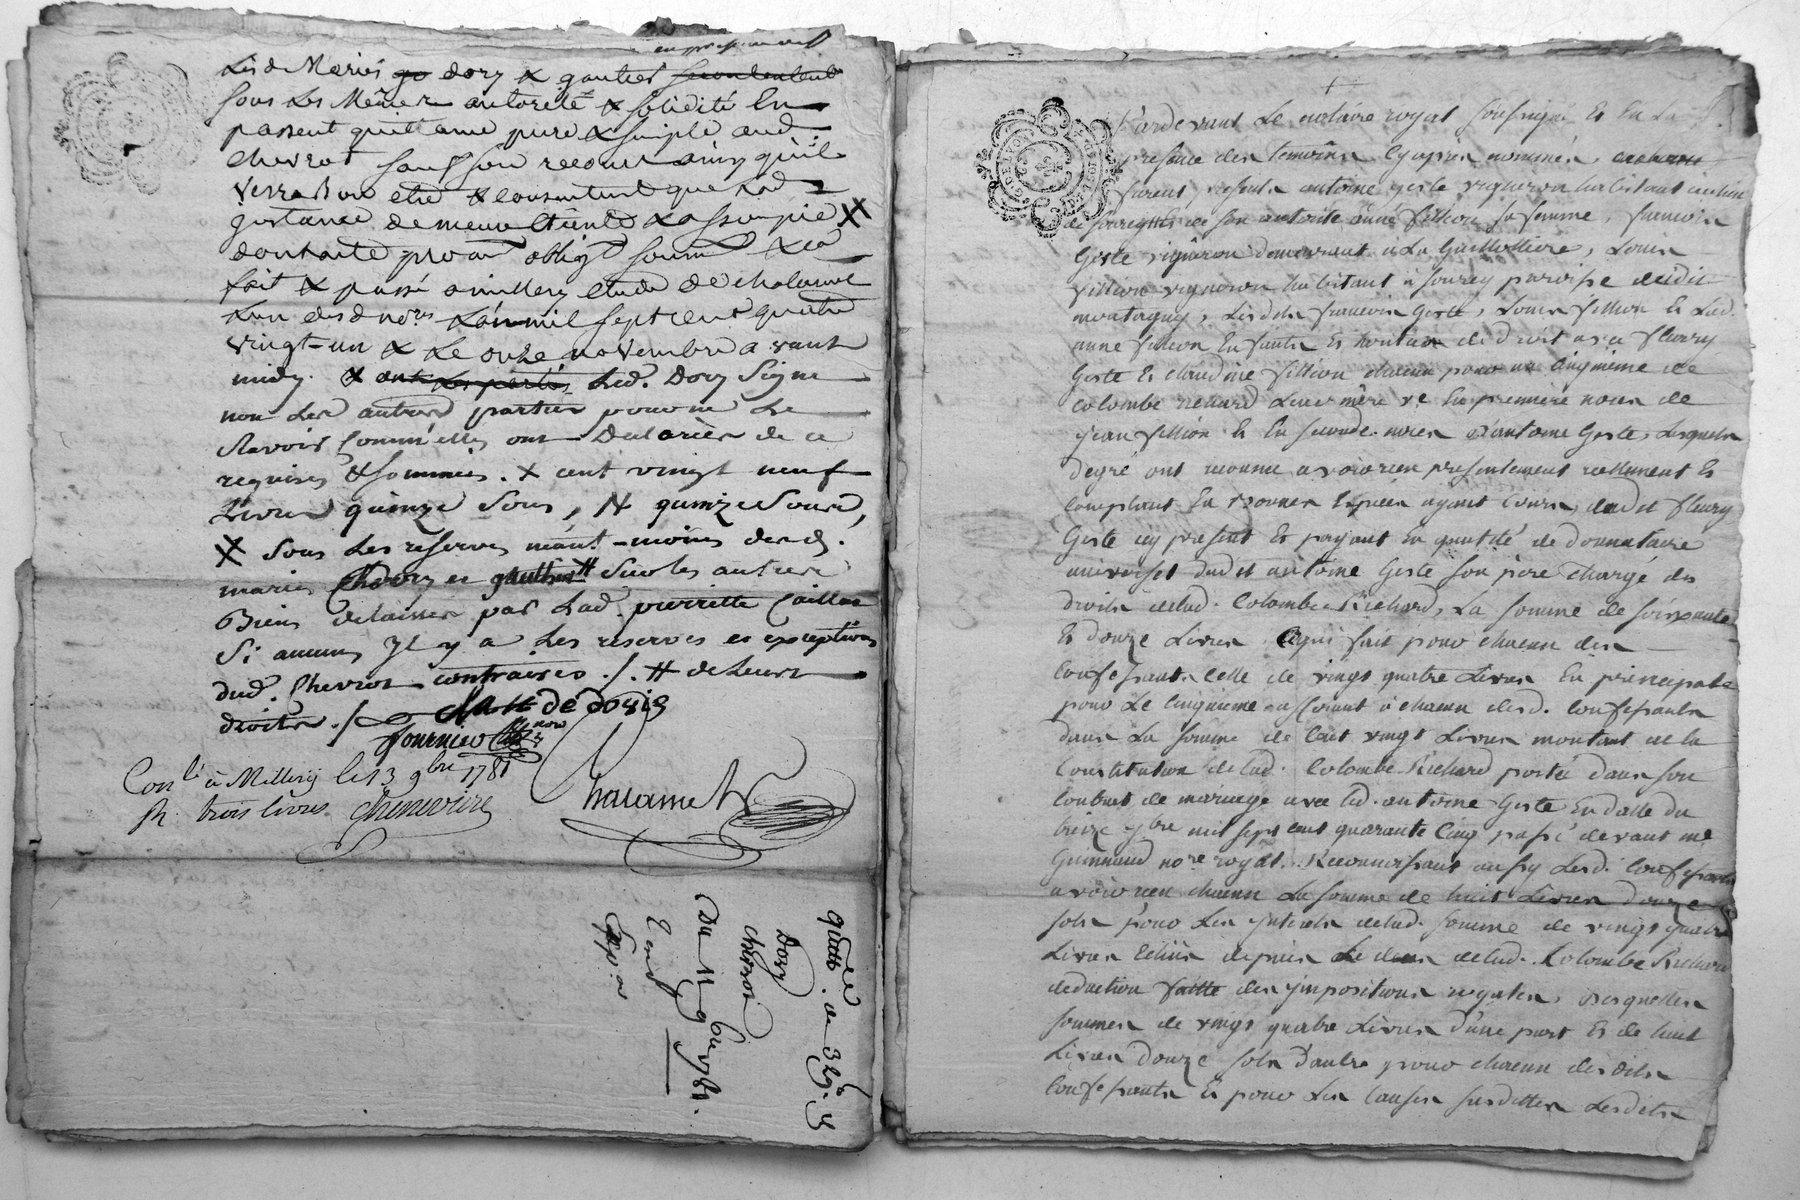 Lesd Mariés dory & gautier
sous les Mêmes autorité & solidité En
passent quittance pure & simple aud.
Chevrot sauf son recours ainsy qu'il
verra bon etre & consentent que lad
&
dont acte pour obligt soumn & ca
fait & passé a millery etude de chalamel
L'un desd nores L'an mil sept cent quatre
vingt-un & Le onze novembre avant
midy. Led. Dory Signe
non Les autres parties pour ne Le
sçavoir comm'elles ont Declarées de ce
requises & sommées. X cent vingt neuf
Livres quinze Sous, N quinze Sous,
X sous les reserves néant-moins desd.
mariés dory et gauthier # sur les autres
Biens delaissés par Lad. pierrette
Si aucuns Il y a les reserves et exceptions
dud. Chevrot contraires ./. # de leurs
droits ./.
fournier
Conlé à Millery le 13 9bre 1781
R. trois livres. Chenevière
Chalamel
quittce de
Dory
chevrot
Du 11 9bre 1781.
Pardevant Le notaire royal soussigné Et En La
presence des temoins cyaprès nommés,
furent presents antoine geste vigneron habitant
de son autorité anne fillion sa femme, francois
Geste vigneron demeurant à La Guillotiere, Louis
fillion vigneron habitant à Sourcy paroisse dudit
montagny, Lesdits francois Geste, Louis fillion Et Lad.
anne fillion Enfants Et heritiers de droit avec fleury
Geste Et claudine fillion chacun pour un cinquieme de
Colombe Richard Leur mère ve En premiere noces de
jean fillion Et En seconde noces d'antoine Geste, Lesquels
degré ont reconnu avoir reçu presentement réellement Et
comptant En bonnes Especes ayant cours, dudit fleury
Geste icy present Et payant En qualité de donnataire
universel dudit antoine Geste son père chargé des
droits delad. Colombe Richard, La somme de soixante
Et douze Livres Ce qui fait pour chacun des
Confessants celle de vingt quatre Livres En principal
pour Le Cinquieme afferant à chacun desd. Confessants
dans La somme de Cent vingt Livres montant de la
Constitution de lad. Colombe Richard portée dans son
Contract de mariage avec led. antoine Geste En datte du
treize 9bre mil sept cent quarante Cinq passé devant me
Guinnand nore royal. Reconnaissant aussy Lesd. Confessants
avoir reçu chacun La somme de huit Livres Douze
sols pour Les Interets delad. somme de vingt quatre
Livres Echus depuis Le deces delad. Colombe Richard
deduction faitte des Impositions royales, Desquelles
sommes de vingt quatre Livres d'une part Et de huit
Livres Douze sols D'autre pour chacun desdits
Confessants Et pour Les Causes susdittes Lesdits